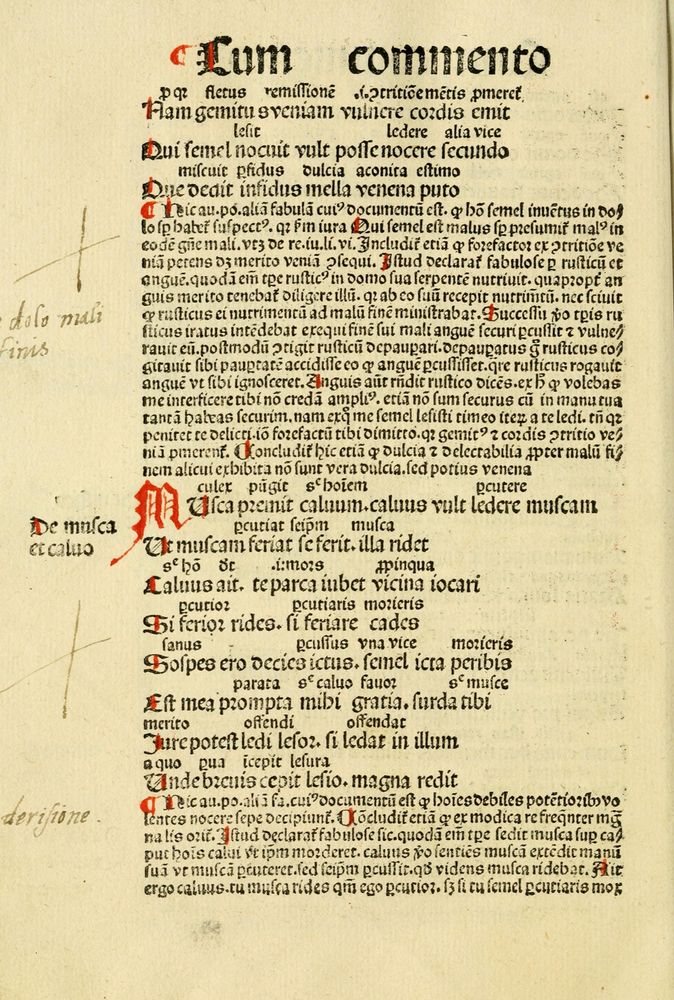 Cum commento
ꝓ qr fletus remissionē .i. ↄtritiōe mētis ꝓmeret᷑
Nam gemitus veniam vulnere cordis emit
lesit ledere alia vice
Qui semel nocuit vult posse nocere secundo
miscuit ꝑfidus dulcia aconita estimo
Que dedit infidus mella venena puto
¶ Hic au. po. aliā fabulā cuiꝰ documentū est. ꝙ hōn semel inventus in do/
lo sꝑ habet᷑ suspectꝰ. qr ẜm iura Qui semel est malus sꝑ presumit᷑ malꝰ in
eodē gn̄e mali. vtꝫ de re. iu. li. vi. Includit᷑ etiā ꝙ forefactor ex ↄtritiōe ve
niā petens dꝫ merito veniā ↄsequi. Istud declarat᷑ fabulose ꝑ rusticū et
anguē. quodā em̄ tꝑe rusticꝰ in domo sua serpentē nutrivit. quapropt᷑ an
guis merito tenebat᷑ diligere illū. qr ab eo suū recepit nutrimētū. nec scivit
ꝙ rusticus ei nutrimentū ad malū finē ministrabat. Successu ꝟo tꝑis ru
sticus iratus intēdebat exequi finē sui mali anguē securi ꝑcussit ⁊ vulne/
ravit eū. postmodū ↄtigit rusticū depauꝑari. depauꝑatus gͦ rusticus co/
gitavit sibi pauꝑtatē accidisse eo ꝙ anguē ꝑcussisset. qre rusticus rogavit
anguē vt sibi ignosceret. Anguis aūt rn̄dit rustico dicēs. ex hͦ ꝙ volebas
me interficere tibi nō credā ampliꝰ. etiā nō sum securus cū in manu tua
tantā habeas securim. nam exqͦ me semel lesisti timeo iteꝝ a te ledi. tn̄ qr
penitet te delicti. iō forefactū tibi dimitto. qr gemitꝰ ⁊ cordis ↄtritio ve/
niā ꝓmerent᷑. Concludit᷑ hic etiā ꝙ dulcia ⁊ delectabilia ꝓpter malū fi/
nem alicui exhibita nō sunt vera dulcia. sed potius venena
culex pūgit sc hoīem ꝑcutere
MUsca premit caluum. caluus vult ledere muscam
ꝑcutiat seipm̄ musca
Ut muscam feriat se ferit. illa ridet
sc hō dt .i. mors ꝓpinqua
Caluus ait. te parca iubet vicina iocari
ꝑcutior ꝑcutiaris morieris
Si ferior rides. si feriare cades
sanus ꝑcussus vna vice morieris
Sospes ero decies ictus. semel icta peribis
parata sc calvo favor sc musce
Est mea prompta mihi gratia. surda tibi
merito offendi offendat
Jure potest ledi lesor. si ledat in illum
a quo ꝑua īcepit lesura
Unde brevis cepit lesio. magna redit
¶ Hic au. po. aliā fa. cuiꝰ documentū est ꝙ hoīes debiles potētioribꝰ vo
lentes nocere sepe decipiunt᷑. Cōcludit᷑ etiā ꝙ ex modica re freqn̄ter ma
na lis orit᷑. Istud declarat᷑ fabulose sic. quodā em̄ tꝑe sedit musca suꝑ ca/
put hoīs calui vt ipm̄ morderet. caluus ꝟo sentiēs muscā extēdit manū
suā vt muscā ꝑcuteret. sed seipm̄ ꝑcussit. qd̄ videns musca ridebat. Ait
ergo caluus. tu musca rides qm̄ ego ꝑcutior. sꝫ si tu semel ꝑcutiaris mox
dolo mali
finis
De musca
et caluo
derisione.